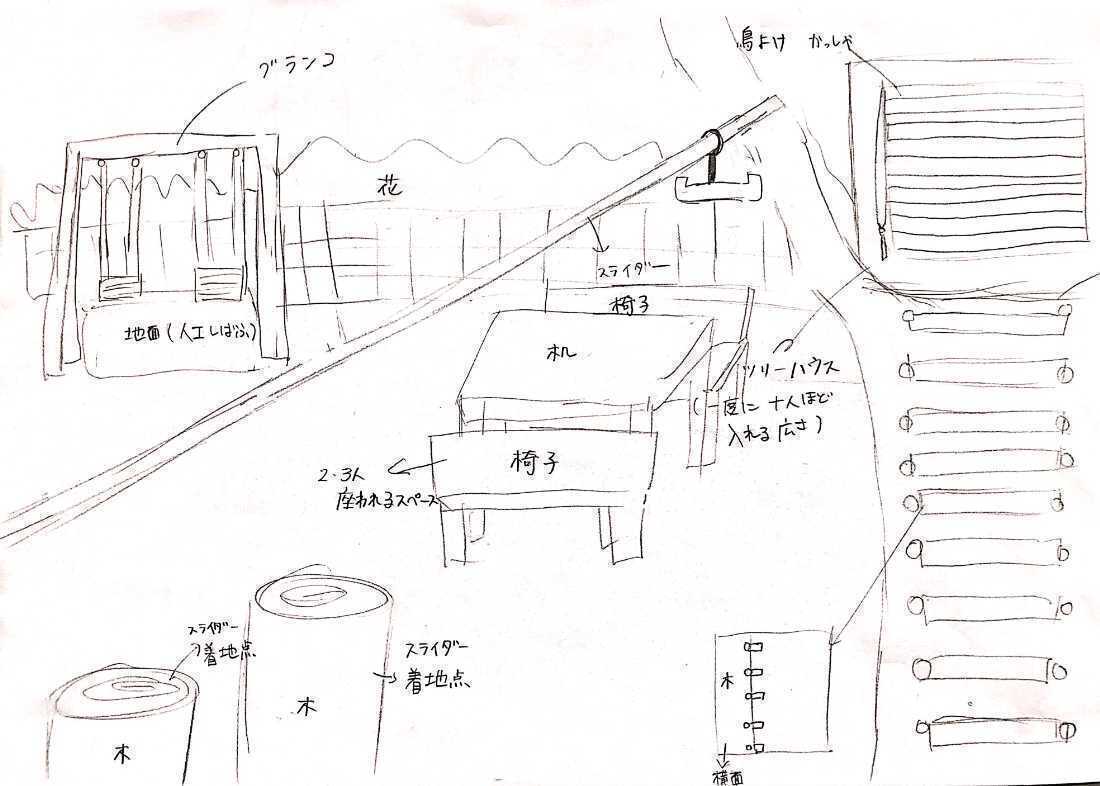 鳥よけ かっしゃ
ブランコ
花
スライダー
椅子
地面(人工しばふ)
机
ツリーハウス
(庭に 十人ほど
入れる広さ)
椅子
2・3人
座われるスペース
スライダー
着地点
スライダー
着地点
木
木
木
横面